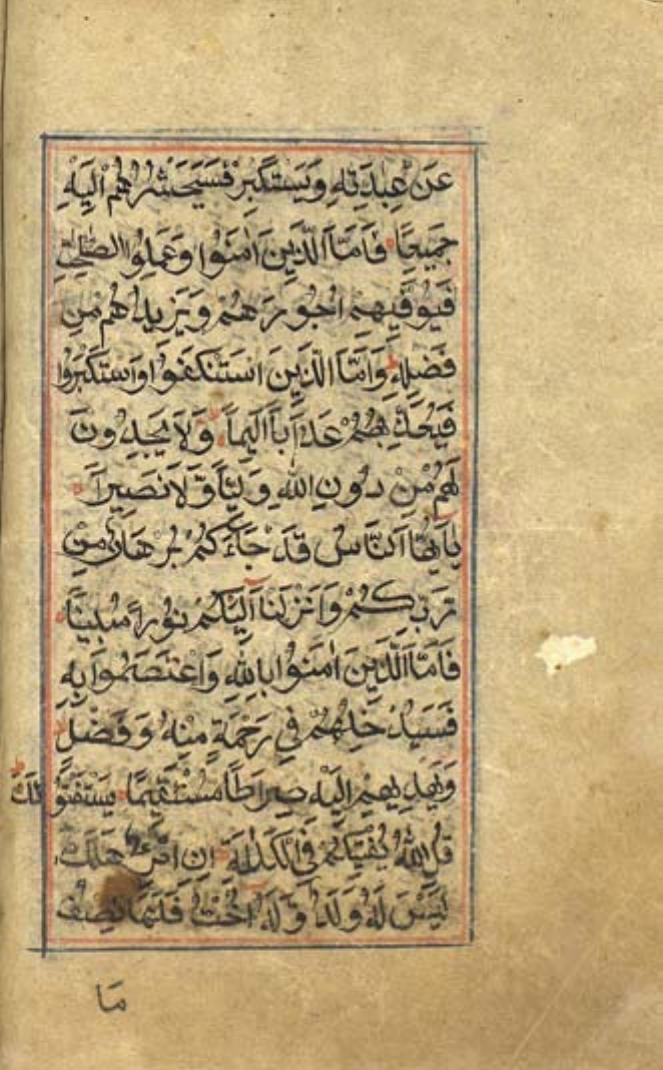 عَنْ عِبَدَتِهِ وَيَسْتَكْبِرْ فَسَيَحْشُرُهُمْ اِلَيْهِ
جَمِيعًا فَاَمَّا الَّذِينَ اٰمَنُوا وَعَمِلُوا الصّٰلِحٰتِ
فَيُوَفِّيهِمْ اُجُورَهُمْ وَيَزِيدُهُمْ مِنْ
فَضْلِهِ وَاَمَّا الَّذِينَ اسْتَنْكَفُوا وَاسْتَكْبَرُوا
فَيُعَذِّبُهُمْ عَذَاباً اَلِيماً وَلَا يَجِدُونَ
لَهُمْ مِنْ دُونِ اللّٰهِ وَلِيّاً وَّلَا نَصِيراً
يٰاَيُّهَا النَّاسُ قَدْ جَاءَكُمْ بُرْهَانٌ مِنْ
رَبِّكُمْ وَاَنْزَلْنَا اِلَيْكُمْ نُوراً مُبِينًا
فَاَمَّا الَّذِينَ اٰمَنُوا بِاللّٰهِ وَاعْتَصَمُوا بِهِ
فَسَيُدْخِلُهُمْ فِي رَحْمَةٍ مِنْهُ وَفَضْلٍ
وَيَهْدِيهِمْ اِلَيْهِ صِرَاطًا مُسْتَقِيمًا يَسْتَفْتُونَكَ
قُلِ اللّٰهُ يُفْتِيكُمْ فِي الْكَلٰلَةِ اِنِ امْرُؤٌ هَلَكَ
لَيْسَ لَهُ وَلَدٌ وَّلَهُ اُخْتٌ فَلَهَا نِصْفُ
مَا